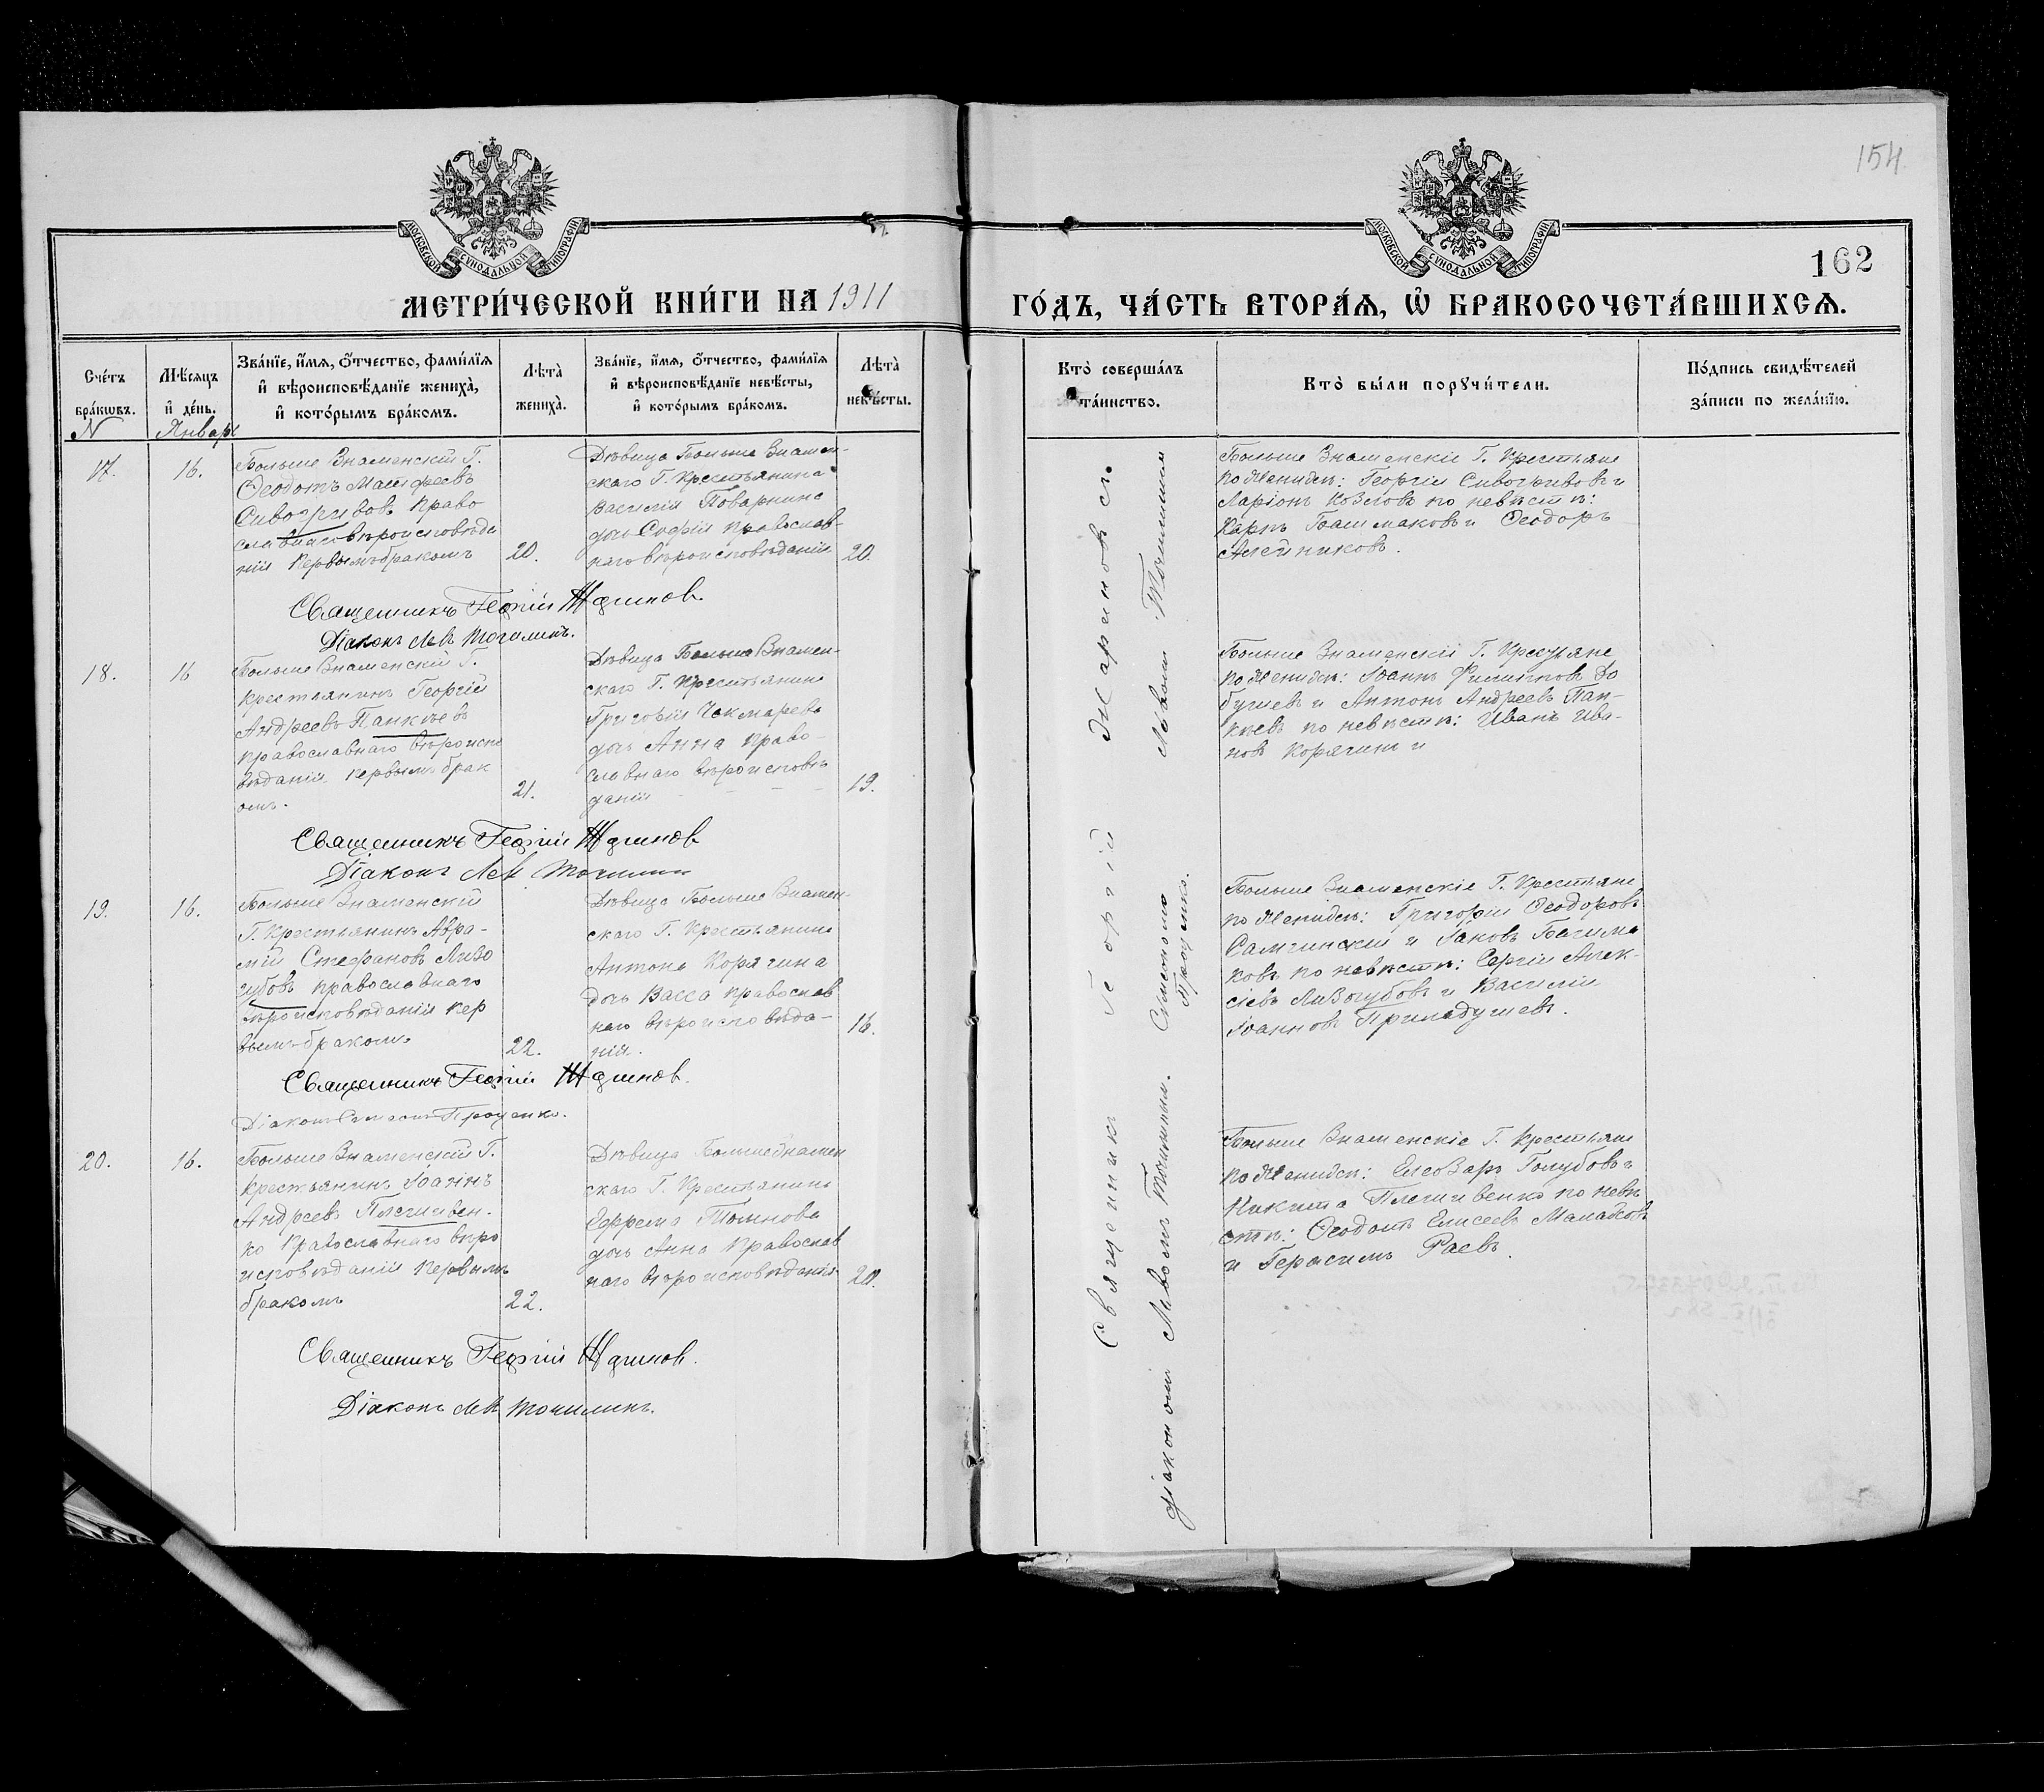 154
162
МОСКОВСКОЙ СУНОДАЛЬНОЙ ТИПОГРАФІИ
МОСКОВСКОЙ СУНОДАЛЬНОЙ ТИПОГРАФІИ
МЕТРИ́ЧЕСКОЙ КНИ́ГИ НА 1911
ГО́ДЪ, ЧА́СТЬ ВТОРА́Я, Ѽ БРАКОСОЧЕТА́ВШИХСѦ.
Сче́тъ
бра́кѡвъ.
N
Мѣ́сяцъ
и҆ де́нь.
Январь
Зва́нїе, и҆́мѧ, ѻ҆́тчество, фами́лїѧ
и҆ вѣроисповѣ́данїе жениха̀,
и҆ кото́рымъ бра́комъ.
Лѣ́та̀
жениха̀.
Зва́нїе, и҆́мѧ, ѻ҆́тчество, фами́лїѧ
и҆ вѣроисповѣ́данїе невѣ́сты,
и҆ кото́рымъ бра́комъ.
Лѣ́та̀
невѣ́сты.
Кто̀ соверша́лъ
та́инство.
Кто̀ бы́ли порꙋчи́тели.
По́дпись свидѣ́телей
за́писи по жела́нїю.
17.
16.
Больше Знаменскій Г.
Ѳеодотъ Матѳеевъ
Сивогривовъ право
славнаго вѣроисповѣда
нія первымъ бракомъ
20.
Дѣвица Больше Знамен-
скаго Г. Крестьянина
Василія Поварнина
дочь Софія православ-
наго вѣроисповѣданія
20.
Больше Знаменскіе Г. Крестьяне
по женихѣ: Георгій Сивогривовъ и
Ларіонъ Козловъ по невѣстѣ:
Карпъ Башмаковъ и Ѳеодоръ
Алейниковъ.
Священникъ Георгій Жариков.
Діаконъ Левъ Точилинъ.
18.
16
Больше Знаменскій Г.
крестьянинъ Георгій
Андреевъ Панкѣевъ
православнаго вѣроиспо
вѣданія первымъ брак
омъ.
21.
Дѣвица Больше Знамен-
скаго Г. Крестьянина
Григорія Чекмарева
дочь Анна право-
славнаго вѣроисповѣ
данія
19.
Больше Знаменскіе Г. Крестьяне
по женихѣ: Іоаннъ Филиповъ До
бушевъ и Антонъ Андреевъ Пан-
кѣевъ по невѣстѣ: Иванъ Ива-
новъ Корягинъ и
Священникъ Георгій Жариков
Діаконъ Левъ Точилин
19.
16.
Больше Знаменскій
Г. Крестьянинъ Авра-
мій Стефановъ Лизо
губовъ православнаго
вѣроисповѣданія пер
вымъ бракомъ
22.
Дѣвица Больше Знамен-
скаго Г. Крестьянина
Антона Корягина
дочь Васса православ
наго вѣроисповѣда-
нія.
16.
Больше Знаменскіе Г. Крестьяне
по женихѣ: Григорій Ѳеодоровъ
Самчинскій и Іаковъ Башма
ковъ по невѣстѣ: Сергій Алек-
сіевъ Лизогубовъ и Василій
Іоанновъ Приладушевъ.
Священникъ Георгій Жариков.
Діаконъ Симеонъ Проценко.
20.
16.
Больше Знаменскій Г.
крестьянинъ Іоаннъ
Андреевъ Плечивен.
ко православнаго вѣро
исповѣданія первымъ
бракомъ
22.
Дѣвица Больше Знамен
скаго Г. Крестьянина
Ефрема Толмнова
дочь Анна православ
наго вѣроисповѣданія
20.
Больше Знаменскіе Г. крестьяне
по женихѣ: Елеозаръ Голубовъ и
Никита Плечивенко по невѣ
стѣ: Ѳеодотъ Елисеевъ Малаховъ
и Герасимъ Раевъ.
Священникъ Георгій Жариков.
Діаконъ Левъ Точилинъ.
Священникъ Георгій Жариковъ съ
діакономъ Львомъ Точилинымъ. Симеономъ Проценко.